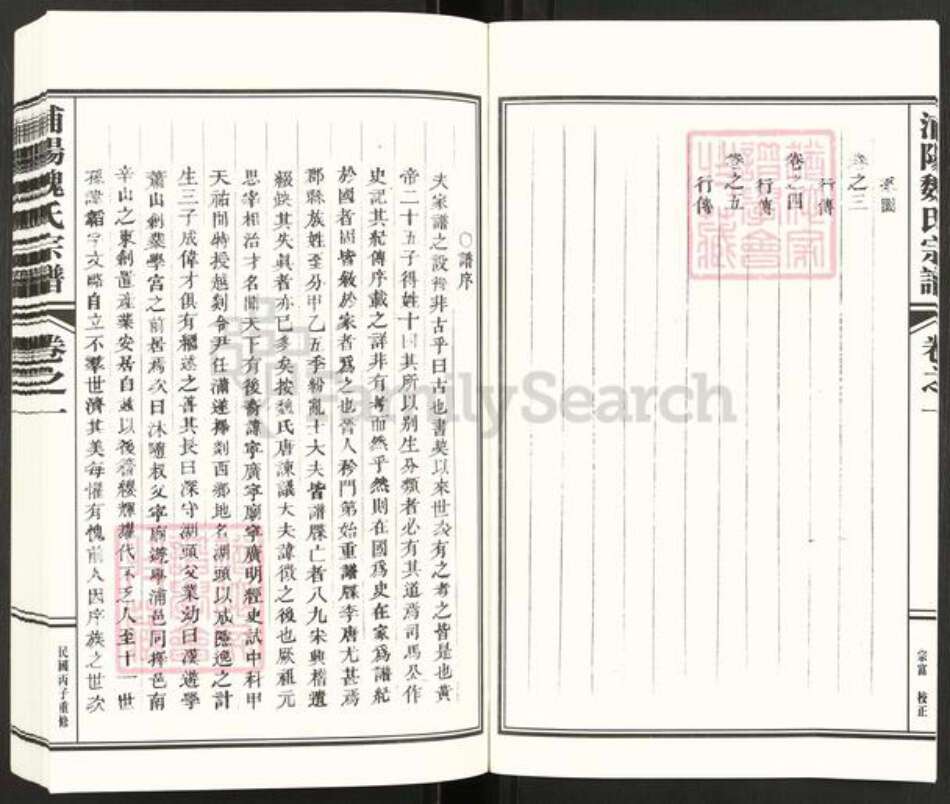 浦陽魏氏宗譜 卷之一
宗富 校正
系圖
卷之三
行傳
卷之四
行傳
卷之五
行傳
○譜序
夫家譜之設得非古乎曰古也書契以來世次有之考之皆是也黃
帝二十五子得姓十四其所以別生分類者必有其道焉司馬公作
史記其紀傳序載之詳非有考而然乎然則在國為史在家為譜紀
於國者固皆敘於家者為之也晉人矜門第始重譜牒李唐尤甚焉
郡縣族姓至分甲乙五季紛亂士大夫皆譜牒亡者八九宋興稽遺
綴缺其失眞者亦已多矣按魏氏唐諫議大夫諱徵之後也厥祖元
思宰相治才名聞天下有後裔諱寧廣寧廟寧廣明經史試中科甲
天祐間特授越剡令尹任滿遂擇剡西鄉地名湖頭以成隱逸之計
生三子成偉才俱有繼述之善其長曰深守湖頭父業幼曰漢遊學
蕭山創業學宮之前居焉次曰沐隨叔父寧廟遊學浦邑同擇邑南
辛山之東創置產業安居自適以後簪纓輝耀代不乏人至十一世
孫諱韜字文略自立不羣世濟其美每懼有愧前人因序族之世次
浦陽魏氏宗譜 卷之一
民國丙子重修
FamilySearch